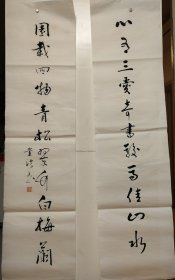 心有三爱奇书骏马佳山水
園栽四物青松翠竹白梅蘭